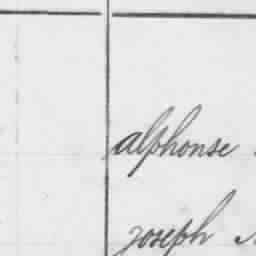 alphonse
joseph